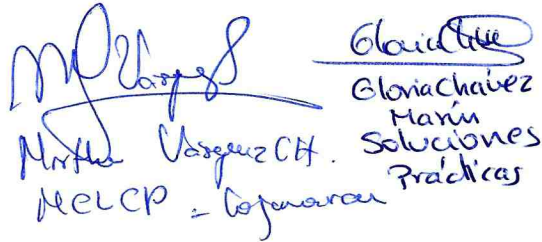 Vásquez
Mirtha Vásquez CH.
MCLCP - Cajamarca
Gloria Chávez
Marín
Soluciones
Prácticas